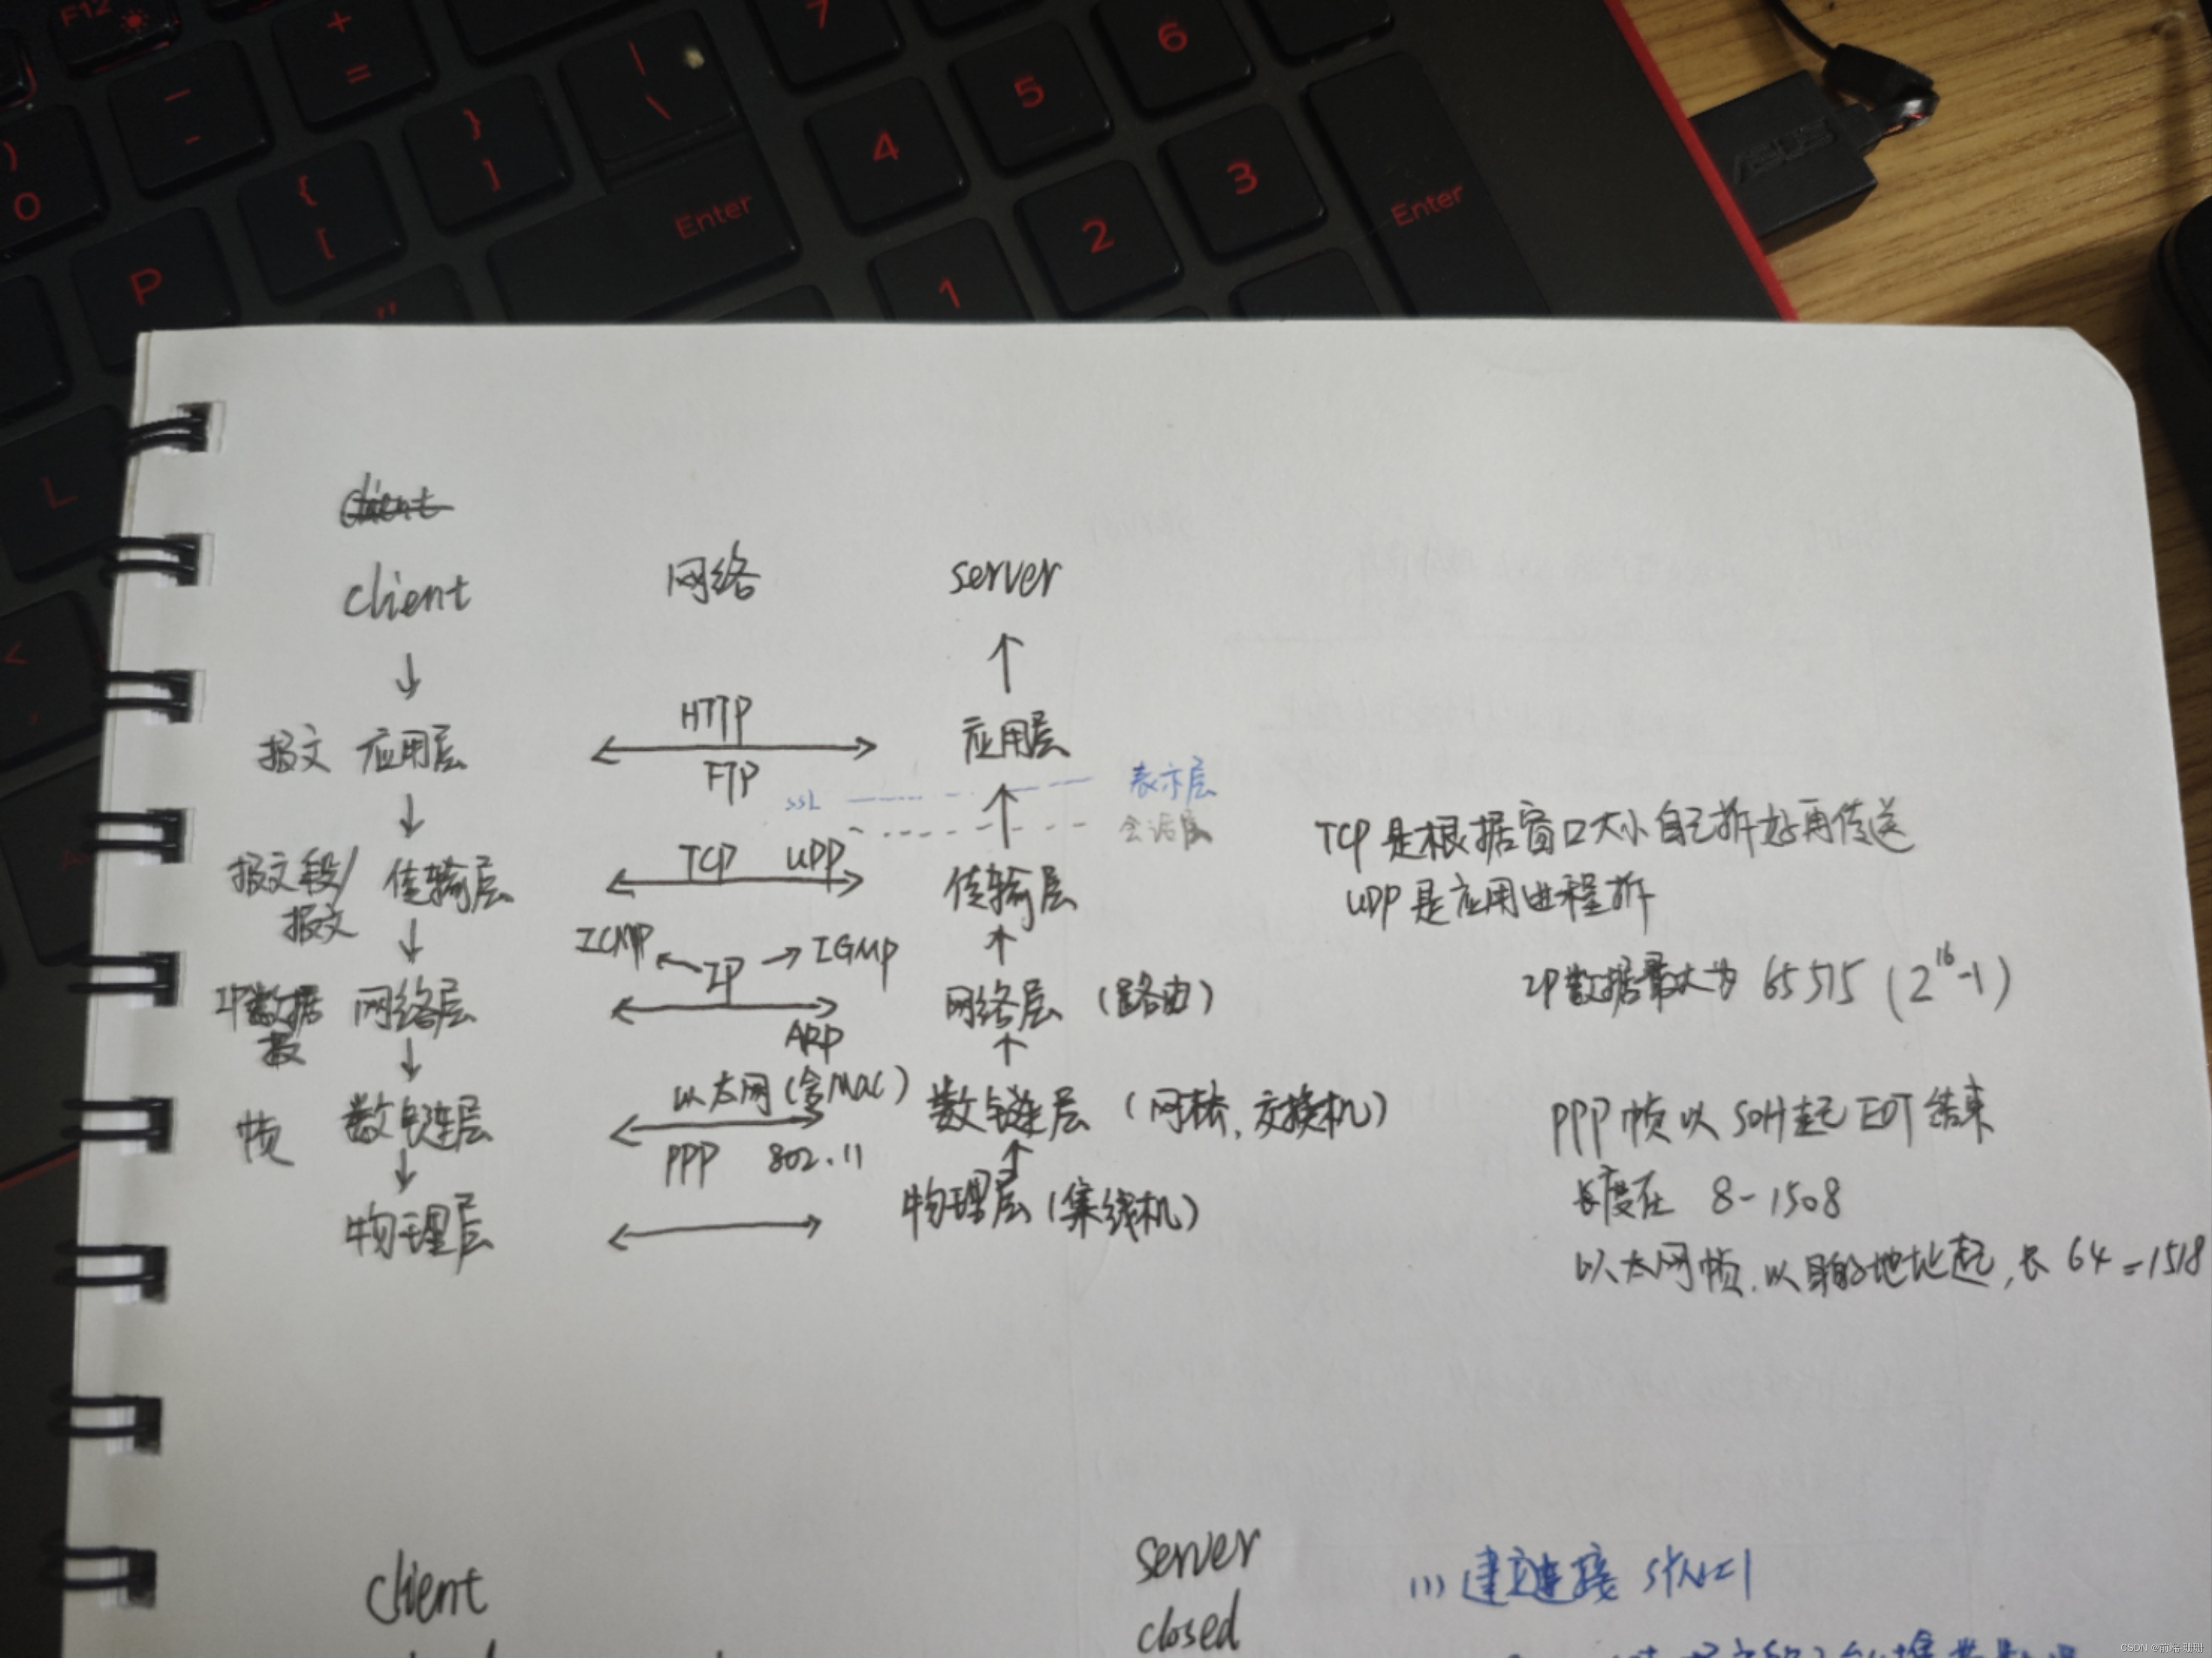 F12
+
=
|
\
7
6
_
-
}
]
4
5
)
0
{
[
Enter
3
Enter
P
"
1
2
ASUS
L
<
,
client
client 网络 server
HTTP
报文 应用层 应用层
FTP
SSL 表示层
会话层
TCP UDP
报文段/ 传输层 传输层
报文
TCP是根据窗口大小自己拆好再传送
UDP是应用进程拆
ICMP IP IGMP
IP数据 网络层 网络层 (路由)
报
ARP
IP数据最大为 65515 (2^16-1)
以太网(含MAC)
帧 数链层 数链层 (网桥,交换机)
PPP 802.11
物理层 物理层 (集线机)
PPP帧以SOH起EOT结束
长度在 8-1508
以太网帧.以目的地址起,长 64-1518
client server
closed
(1) 建立连接 SYN=1
CSDN @前端-珊珊